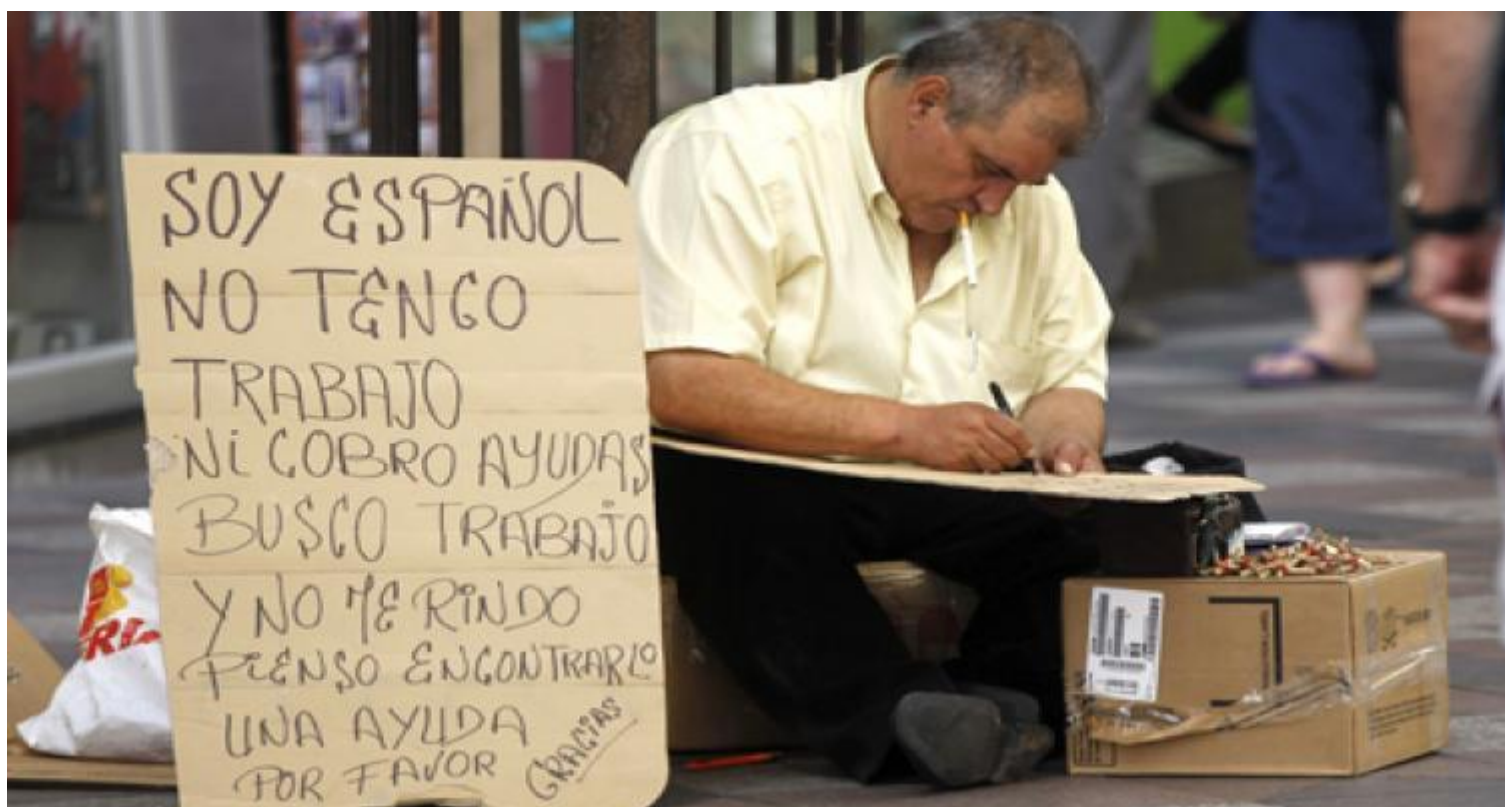 SOY ESPAÑOL
NO TENGO
TRABAJO
NI COBRO AYUDAS
BUSCO TRABAJO
Y NO ME RINDO
PIENSO ENCONTRARLO
UNA AYUDA
POR FAVOR
GRACIAS